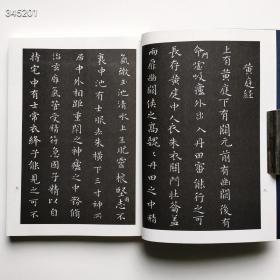 345201
黄庭經
上有黄庭下有關元前有幽闕後有
命門嘘吸廬外出入丹田審能行之可
長存黄庭中人衣朱衣關門壯籥蓋
兩扉幽闕侠之高魏々丹田之中精
氣微玉池清水上生肥靈根堅志不
衰中池有士服赤朱横下三寸神所
居中外相距重閉之神廬之中務脩
治玄癰氣管受精符急固子精以自
持宅中有士常衣絳子能見之可不